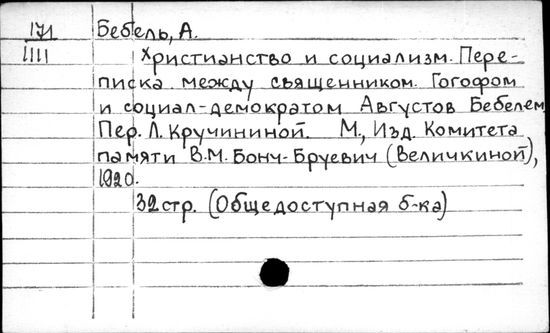 171 Бебель, А.
1111 Христианство и социализм. Пере-
писка между священником Гогофом
и социал-демократом Августов Бебелем
Пер. Л. Кручининой. М., Изд. Комитета
памяти В.М. Бонч-Бруевич (Величкиной),
1920.
32 стр. (Общедоступная б-ка)